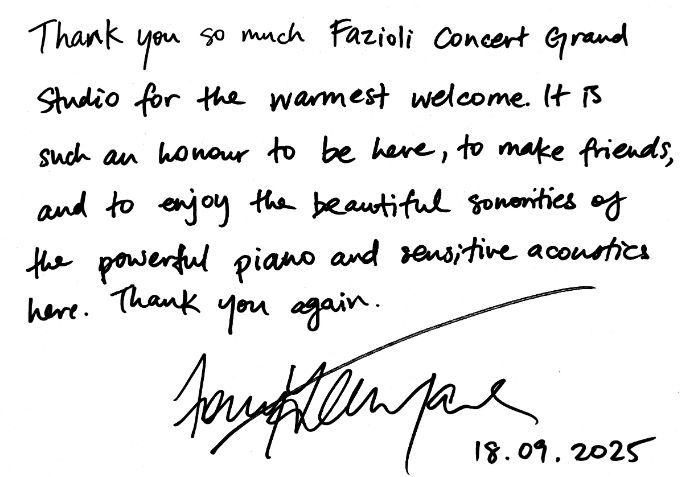 Thank you so much Fazioli Concert Grand
Studio for the warmest welcome. It is
such an honour to be here, to make friends,
and to enjoy the beautiful sonorities of
the powerful piano and sensitive acoustics
here. Thank you again.
18.09.2025